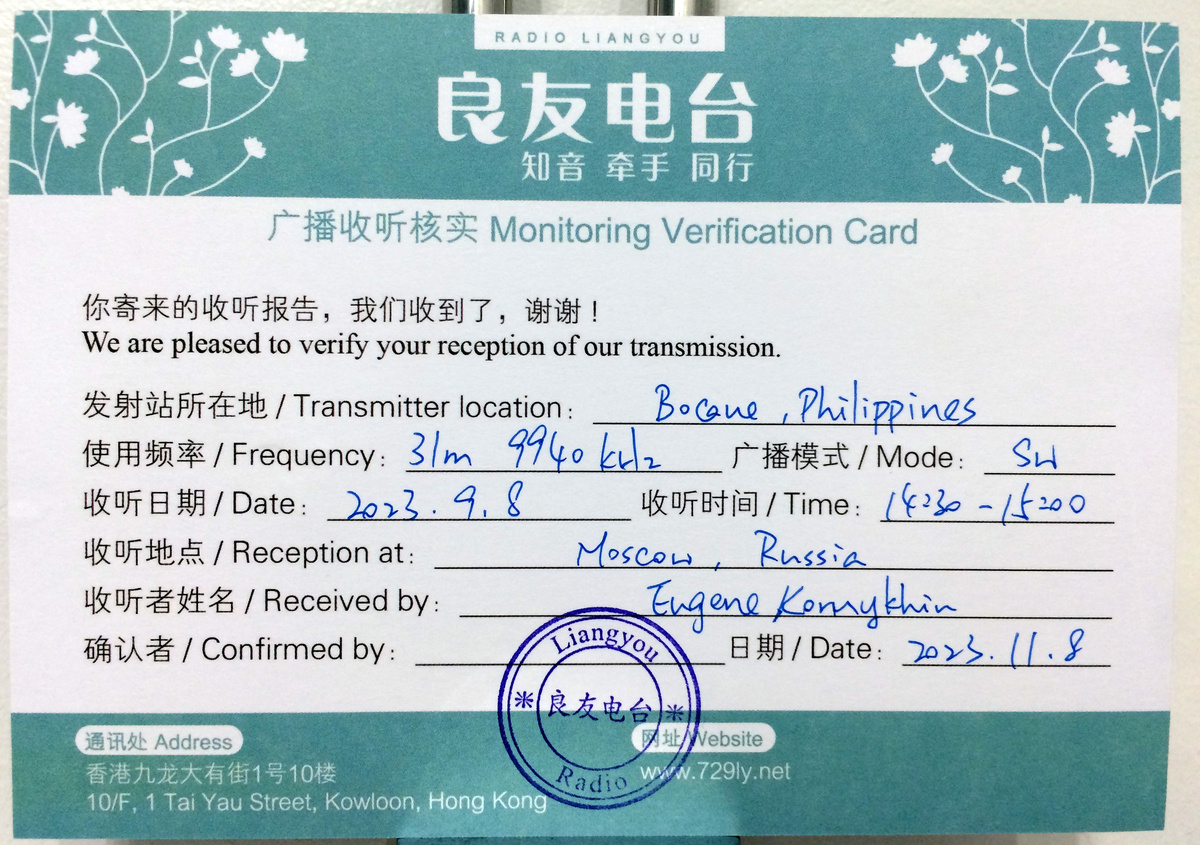 RADIO LIANGYOU
良友电台
知音 牵手 同行
广播收听核实 Monitoring Verification Card
你寄来的收听报告，我们收到了，谢谢！
We are pleased to verify your reception of our transmission.
发射站所在地 / Transmitter location: Bocaue, Philippines
使用频率 / Frequency: 31m 9940 kHz 广播模式 / Mode: SW
收听日期 / Date: 2023.9.8 收听时间 / Time: 14:30 - 15:00
收听地点 / Reception at: Moscow, Russia
收听者姓名 / Received by: Eugene Konnykhin
确认者 / Confirmed by: 日期 / Date: 2023.11.8
Liangyou
良友电台
Radio
通讯处 Address
香港九龙大有街1号10楼
10/F, 1 Tai Yau Street, Kowloon, Hong Kong
网址 Website
www.729ly.net